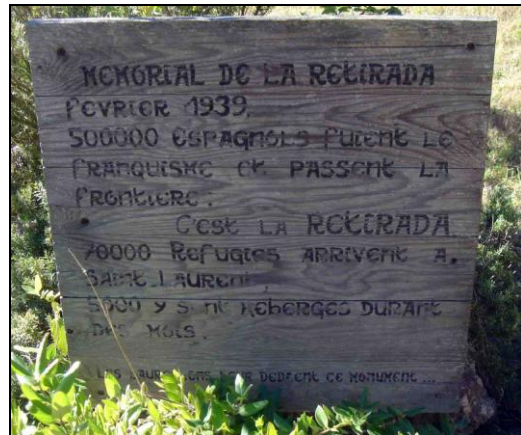 MEMORIAL DE LA RETIRADA
FEVRIER 1939.
500000 ESPAGNOLS FUIENT LE
FRANQUISME ET PASSENT LA
FRONTIERE.
C'EST LA RETIRADA
70000 REFUGIES ARRIVENT A.
SAINT.LAURENT.
5000 Y SONT HEBERGES DURANT
DES MOIS.
LES LEUR DEDIENT CE MONUMENT ...